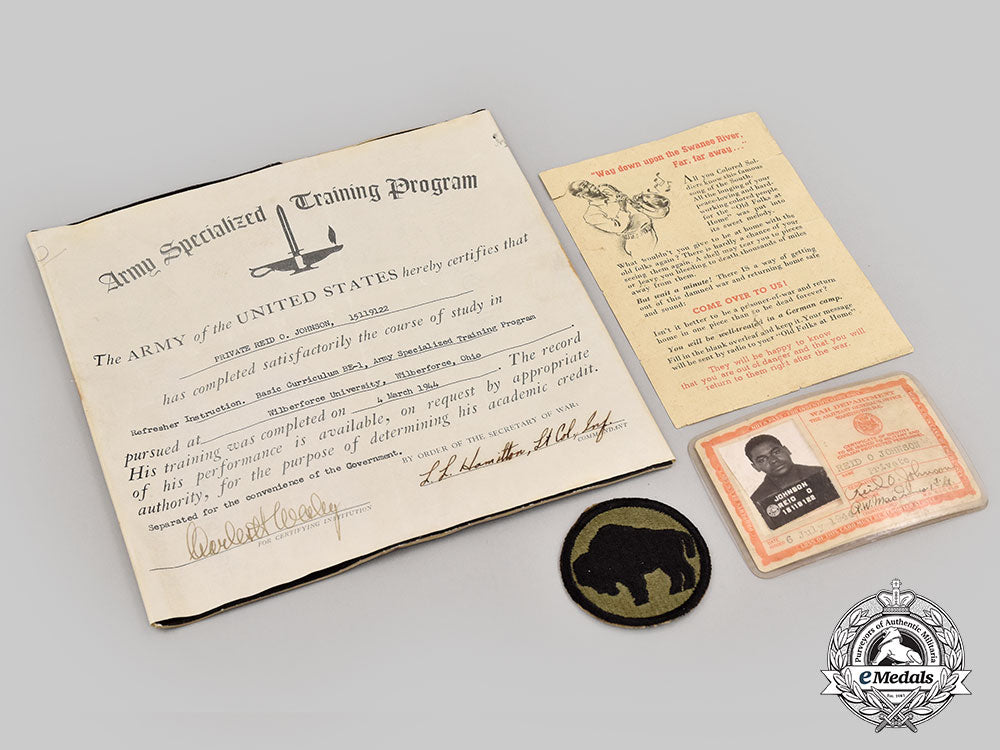 Army Specialized Training Program
The ARMY of the UNITED STATES hereby certifies that
PRIVATE REID O. JOHNSON, 15119122
has completed satisfactorily the course of study in
Refresher Instruction. Basic Curriculum BE-1, Army Specialized Training Program
pursued at Wilberforce University, Wilberforce, Ohio
His training was completed on 4 March 1944. The record
of his performance is available, on request by appropriate
authority, for the purpose of determining his academic credit.
Separated for the convenience of the Government.
BY ORDER OF THE SECRETARY OF WAR:
L. L. Hamilton, Lt Col, Inf.
COMMANDANT
Charles H Wesley
FOR CERTIFYING INSTITUTION
"Way down upon the Swanee River,
Far, far away..."
All you Colored Sol-
diers know this famous
song of the South.
All the longing of your
peace-loving and hard
working colored people
for the "Old Folks at
Home" was put into
its sweet melody
What wouldn't you give to be at home with the
old folks again? There is hardly a chance of your
seeing them again. A shell may tear you to pieces
or leave you bleeding to death thousands of miles
away from them.
But wait a minute! There IS a way of getting
out of this damned war and returning home safe
and sound:
COME OVER TO US!
Isn't it better to be a prisoner-of-war and return
home in one piece than to be dead forever?
You will be well-treated in a German camp.
Fill in the blank overleaf and keep it. Your message
will be sent by radio to your "Old Folks at Home"
They will be happy to know
that you are out of danger and that you will
return to them right after the war.
WAR DEPARTMENT
CERTIFICATE OF IDENTITY
REID O JOHNSON
Private
Reid O. Johnson
JOHNSON
REID O
6 July
Purveyors of Authentic Militaria
eMedals